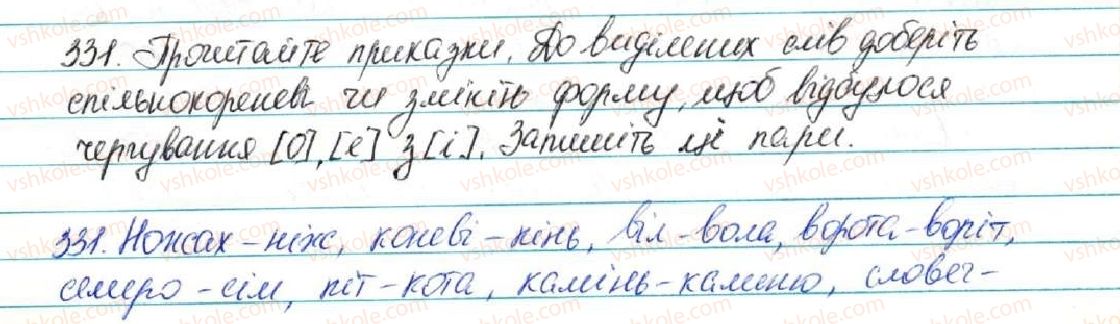 331. Прочитайте приказки. До виділених слів доберіть
спільнокореневі чи змініть форму, щоб відбулося
чергування [о], [е] з [і]. Запишіть ці пари.
331. Ножах – ніж, коневі – кінь, віл – вола, ворота – воріт,
семеро – сім, кіт – кота, камінь – каменю, словеч –
vshkole.com